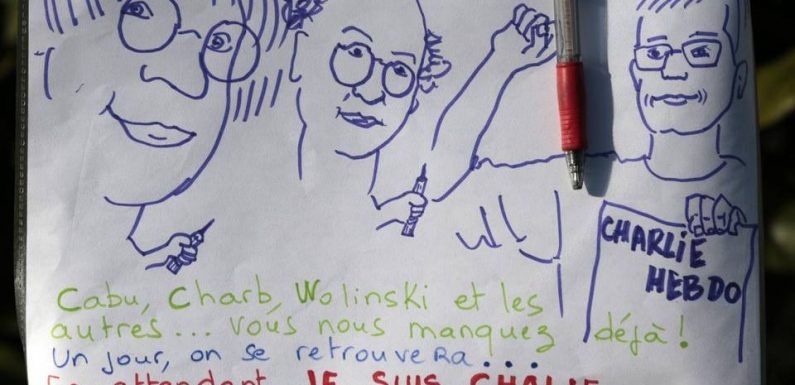 CHARLIE
HEBDO
Cabu, Charb, Wolinski et les
autres... vous nous manquez déjà!
Un jour, on se retrouvera...
En attendant, JE SUIS CHARLIE